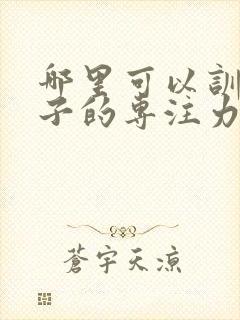 哪里可以訓
子的专注力
蒼宇天凉